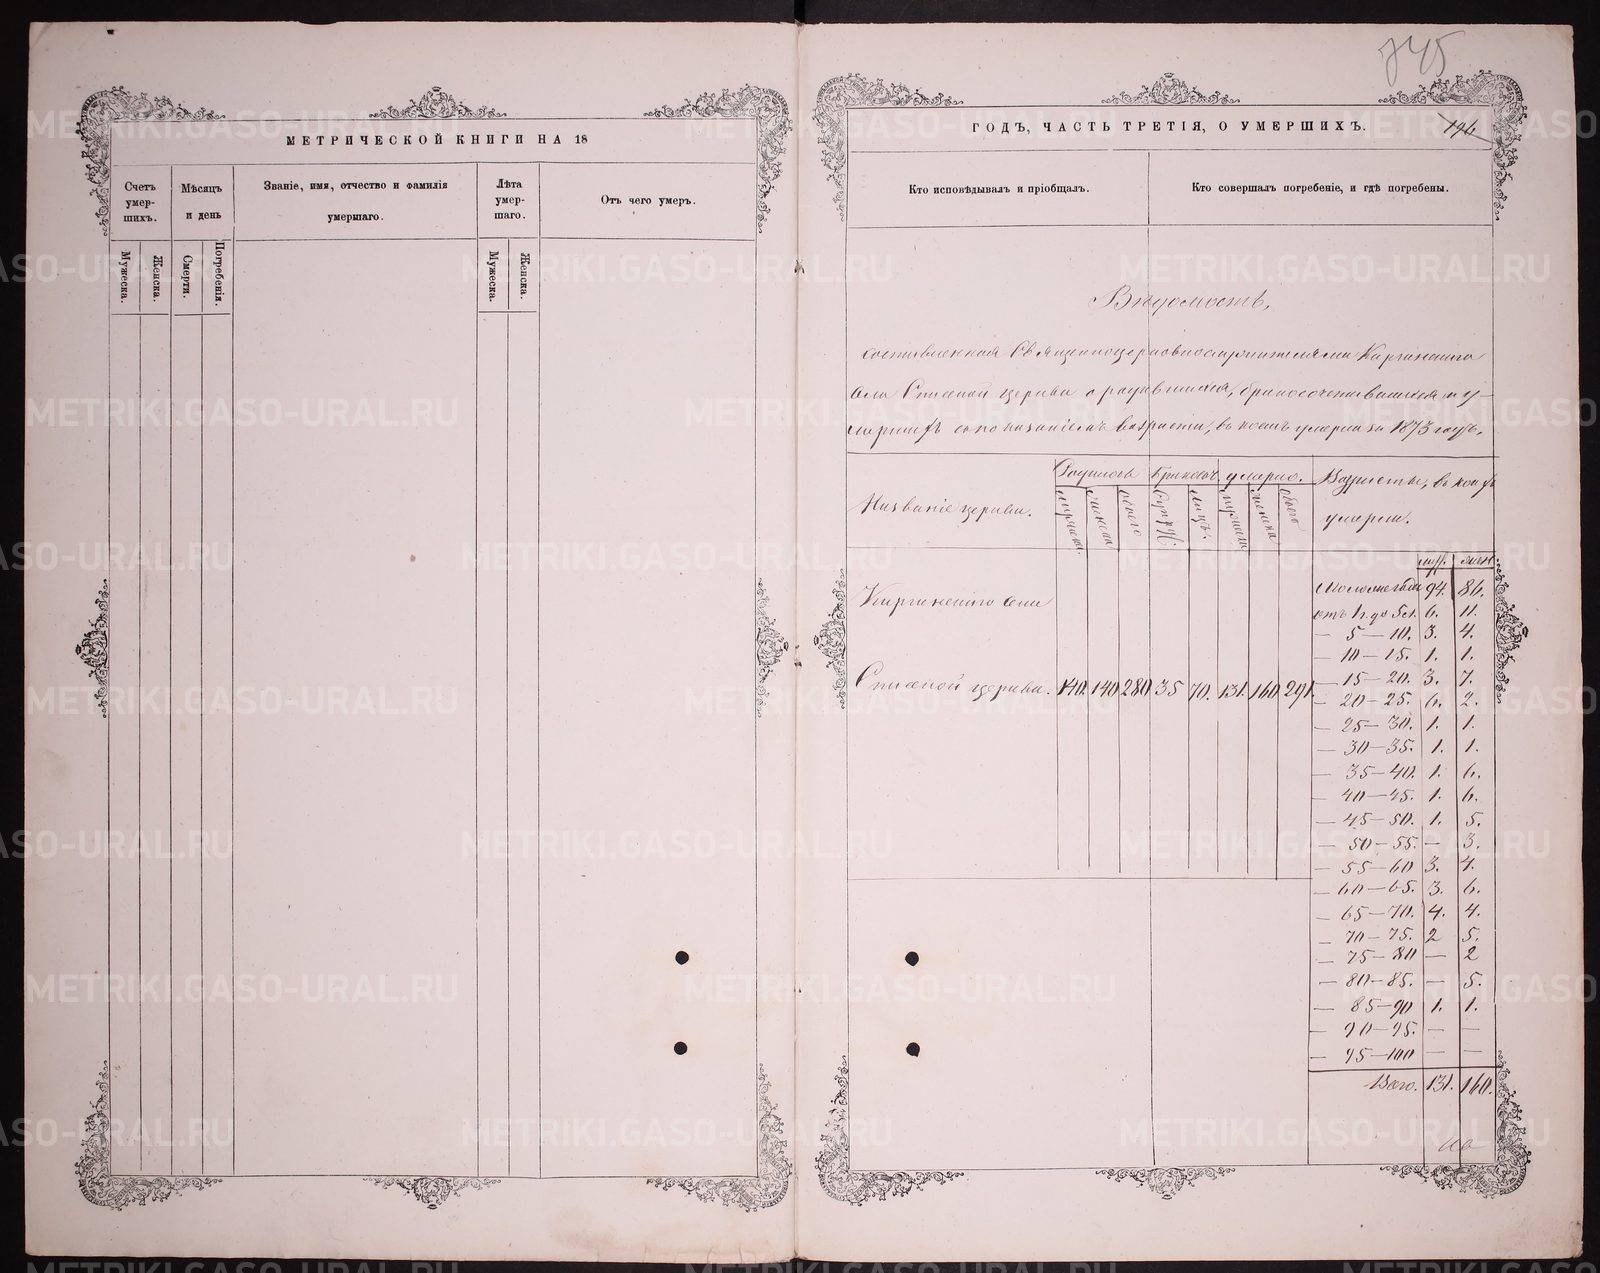 745
196
МЕТРИЧЕСКОЙ КНИГИ НА 18
Счетъ умер-шихъ.
Мѣсяцъ и день
Званіе, имя, отчество и фамилія умершаго.
Лѣта умер-шаго.
Отъ чего умеръ.
Мужеска.
Женска.
Смерти.
Погребенія.
Мужеска.
Женска.
ГОДЪ, ЧАСТЬ ТРЕТІЯ, О УМЕРШИХЪ.
Кто исповѣдывалъ и пріобщалъ.
Кто совершалъ погребеніе, и гдѣ погребены.
Вѣдомость,
составленная Священноцерковнослужителями Киргинскаго
села Спасской церкви о родившихся, бракосочетавшихся и у-
мершихъ съ показаніемъ возраста, въ коемъ умерли за 1873 годъ.
Названіе церкви.
Родилось
Браковъ
умерло.
Возрасты, въ коихъ
умерли.
мужеска
женска
обоего
супруж:
лицъ.
мужеска
женска
обоего
муж. жен.
Киргинскаго села
Спасской церкви. 140. 140 280 35 70. 131. 160. 291.
94. 86.
отъ 1 г. до 5 л. 6. 11.
— 5—10. 3. 4.
— 10—15. 1. 1.
— 15—20. 3. 7.
— 20—25. 6. 2.
— 25—30. 1. 1.
— 30—35. 1. 1.
— 35—40. 1. 6.
— 40—45. 1. 6.
— 45—50. 1. 5.
— 50—55. — 3.
— 55—60 3. 4.
— 60—65. 3. 6.
— 65—70. 4. 4.
— 70—75. 2 5.
— 75—80 — 2
— 80—85. — 5.
— 85—90 1. 1.
— 90—95. — —
— 95—100 — —
Всего. 131. 160.
METRIKI.GASO-URAL.RU